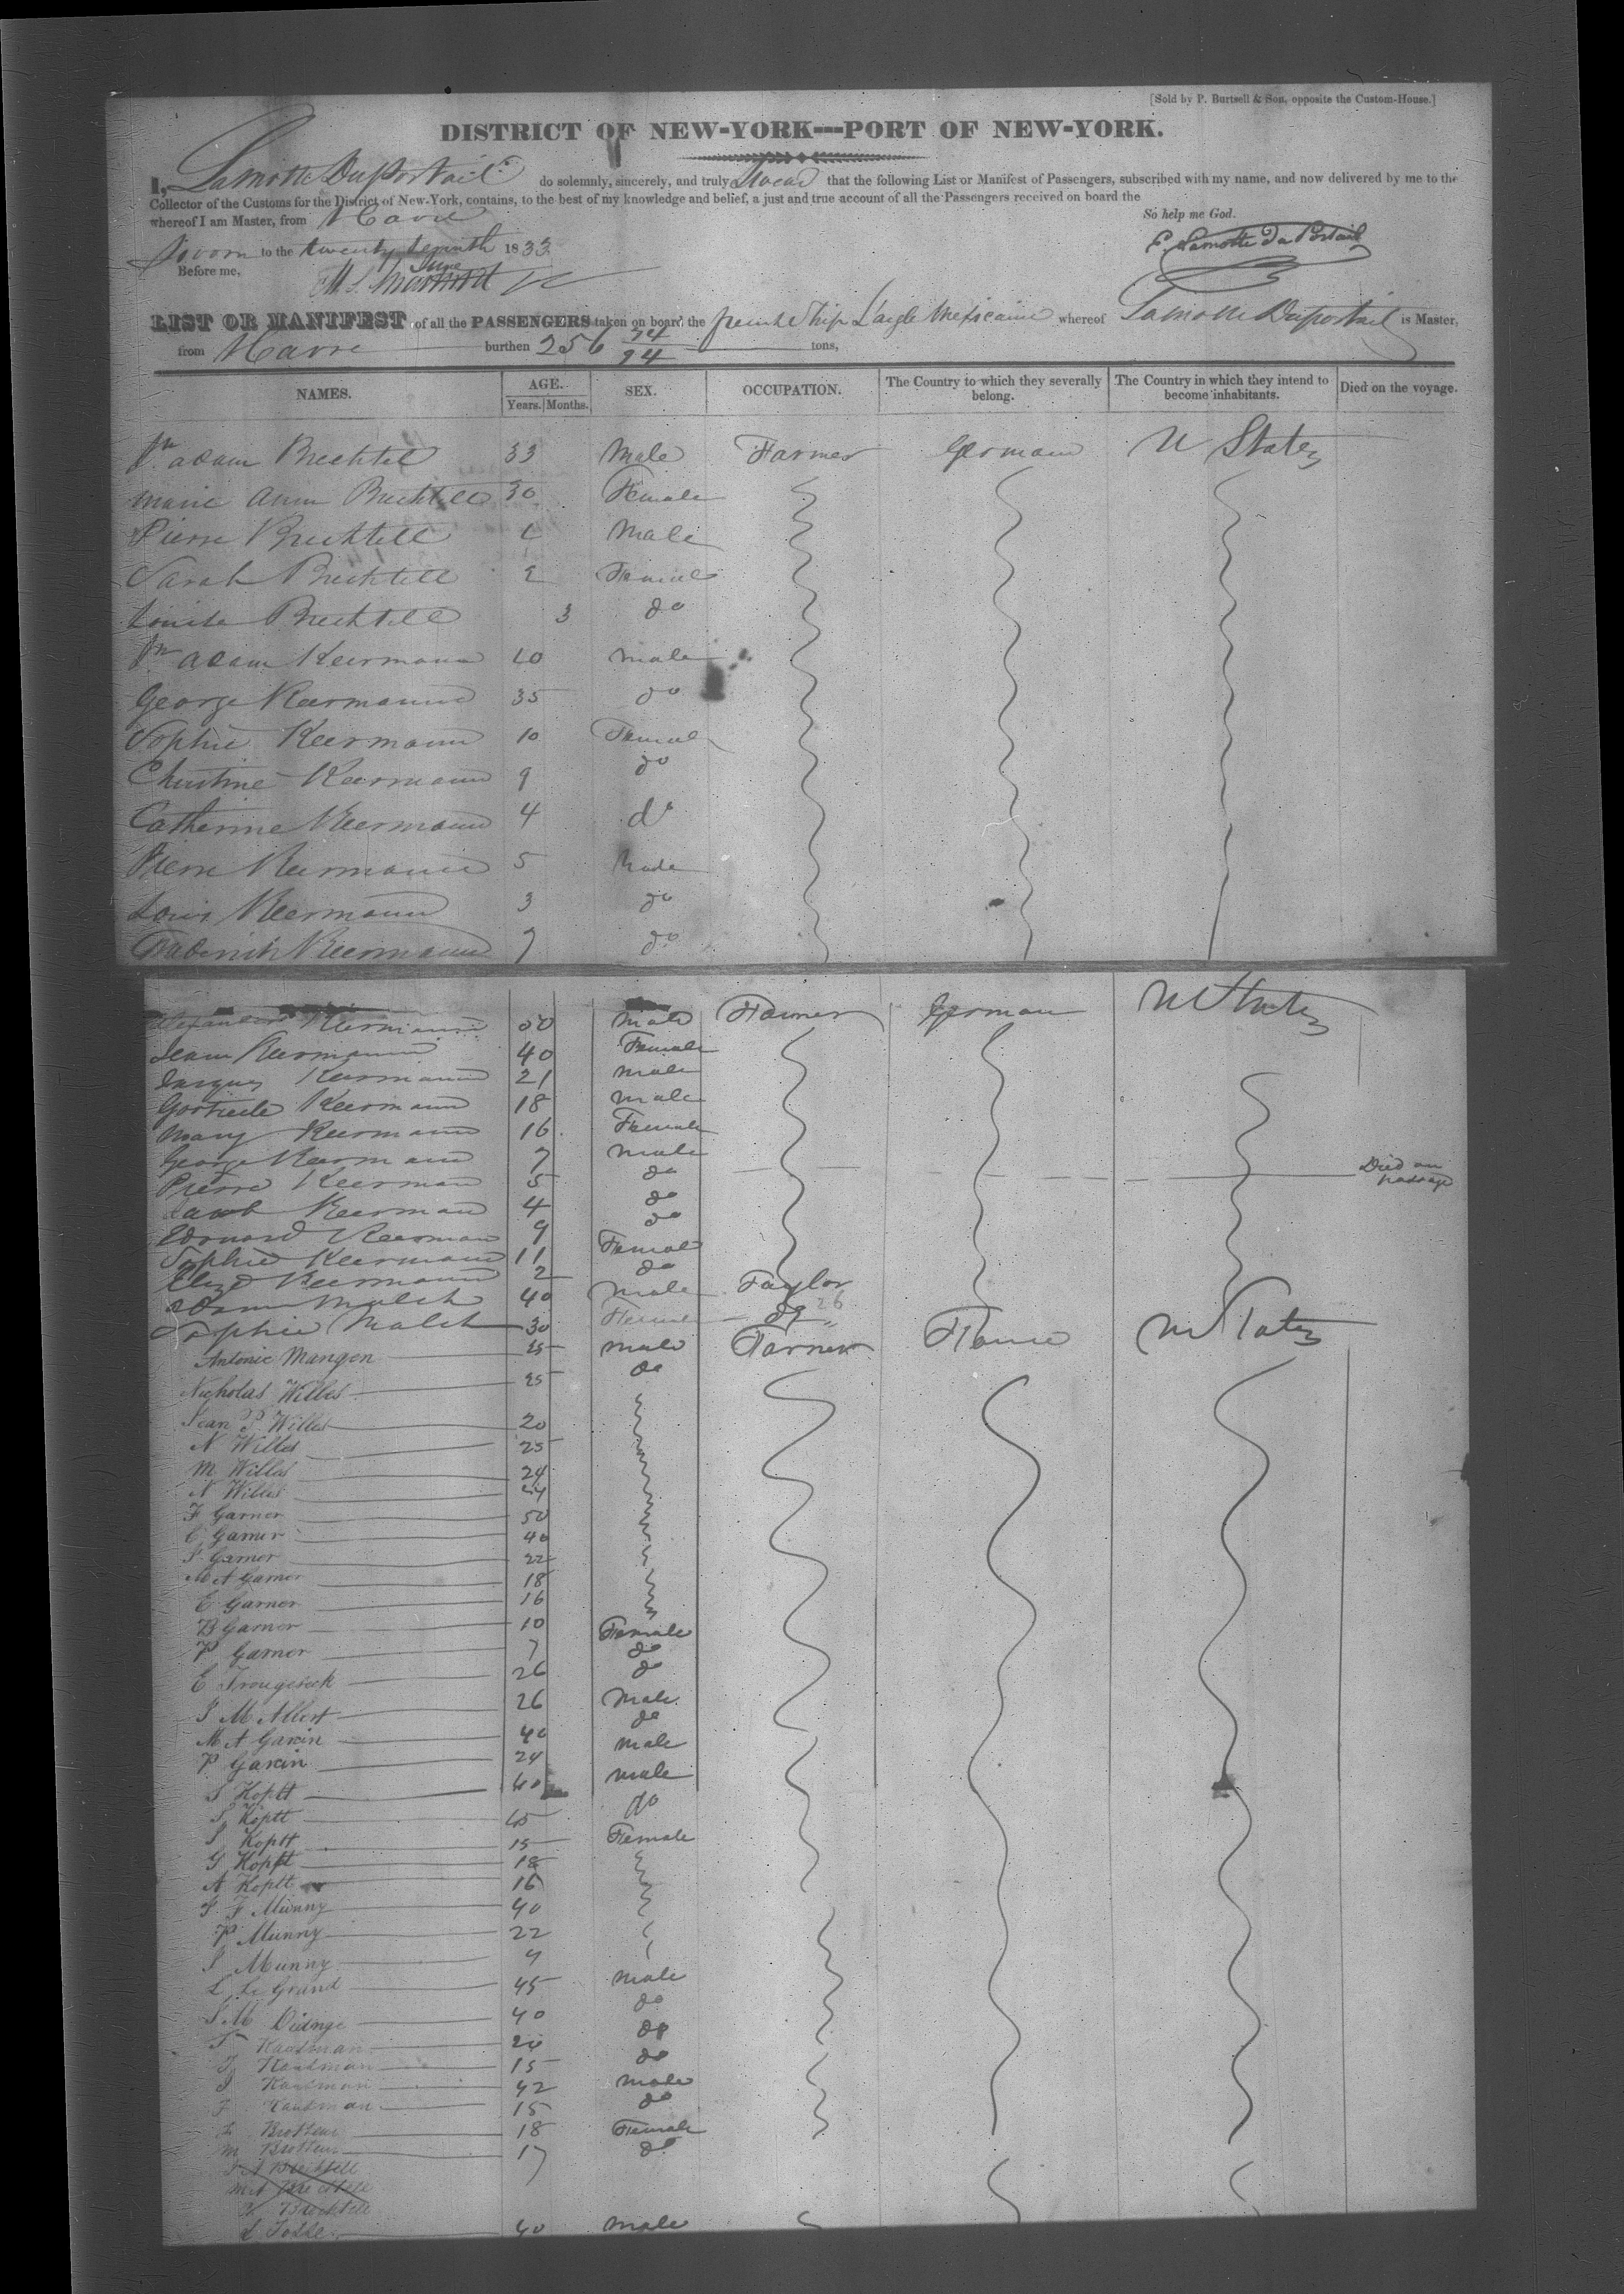 [Sold by P. Burtsell & Son, opposite the Custom-House.]
DISTRICT OF NEW-YORK---PORT OF NEW-YORK.
I, Lamotte Duportail do solemnly, sincerely, and truly Swear that the following List or Manifest of Passengers, subscribed with my name, and now delivered by me to the
Collector of the Customs for the District of New-York, contains, to the best of my knowledge and belief, a just and true account of all the Passengers received on board the
whereof I am Master, from Havre
So help me God.
Sworn to the twenty seventh 1833
June
E. Lamotte Du Portail
Before me,
LIST OR MANIFEST of all the PASSENGERS taken on board the french Ship L'aigle Mexicaine whereof Lamotte Duportail is Master,
from Havre burthen 256 74/94 tons,
NAMES. AGE. SEX. OCCUPATION. The Country to which they severally belong. The Country in which they intend to become inhabitants. Died on the voyage.
Years. Months.
Jn adam Brechtel 33 Male Farmer German U States
Marie Ann Brechtell 30 Female
Pierre Brechtell Male
Sarah Brechtell 2 Female
Louise Brechtell 3 do
Jn adam Keermann Male
George Keermann 35 do
Sophie Keermann 10 Female
Christine Keermann 9 do
Catherine Keermann 4 do
Pierre Keermann 5 Male
Louis Keermann 3 do
Frederick Keermann 7 do
Keermann 50 Male Farmer German U States
Jean Keermann 40 Female
Jacques Keermann 21 Male
Keermann 18 Male
Mary Keermann 16 Female
George Keermann 7 Male
Pierre Keerman 5 do Died on passage
Jacob Keerman 4 do
Edouard Keerman 9 do
Sophie Keermann 11 Female
Elize Keermann 2 do
Adam Malch 40 Male Taylor
Sophie Malch 30 Female do 26
Antonie Mangen 25 Male Farmer France U States
Nicholas Willes 25 do
Jean P Willes 20
N Willes 25
M Willes 24
N Willes 24
F Garner 50
C Garner 40
J Garner 22
M A Garner 18
E Garner 16
B Garner 10 Female
P Garner 7 do
E Trougesick 26 do
J M Albert 26 Male
M A Garcin 40 do
P Garcin 24 Male
J Koptt 40 Male
J Koptt 45 do
J Koptt 15 Female
G Koptt 18
A Koptt 16
J F Munny 40
P Munny 22
J Munny 4
L Le Grand 45 Male
J M 40 do
F Kaufman 20 do
J Kaufman 15 do
J Kaufman 42 Male
F Kaufman 15 do
L 18 Female
M 17 do
J A Brechtell 7
M A Brechtell
P Brechtell
40 Male